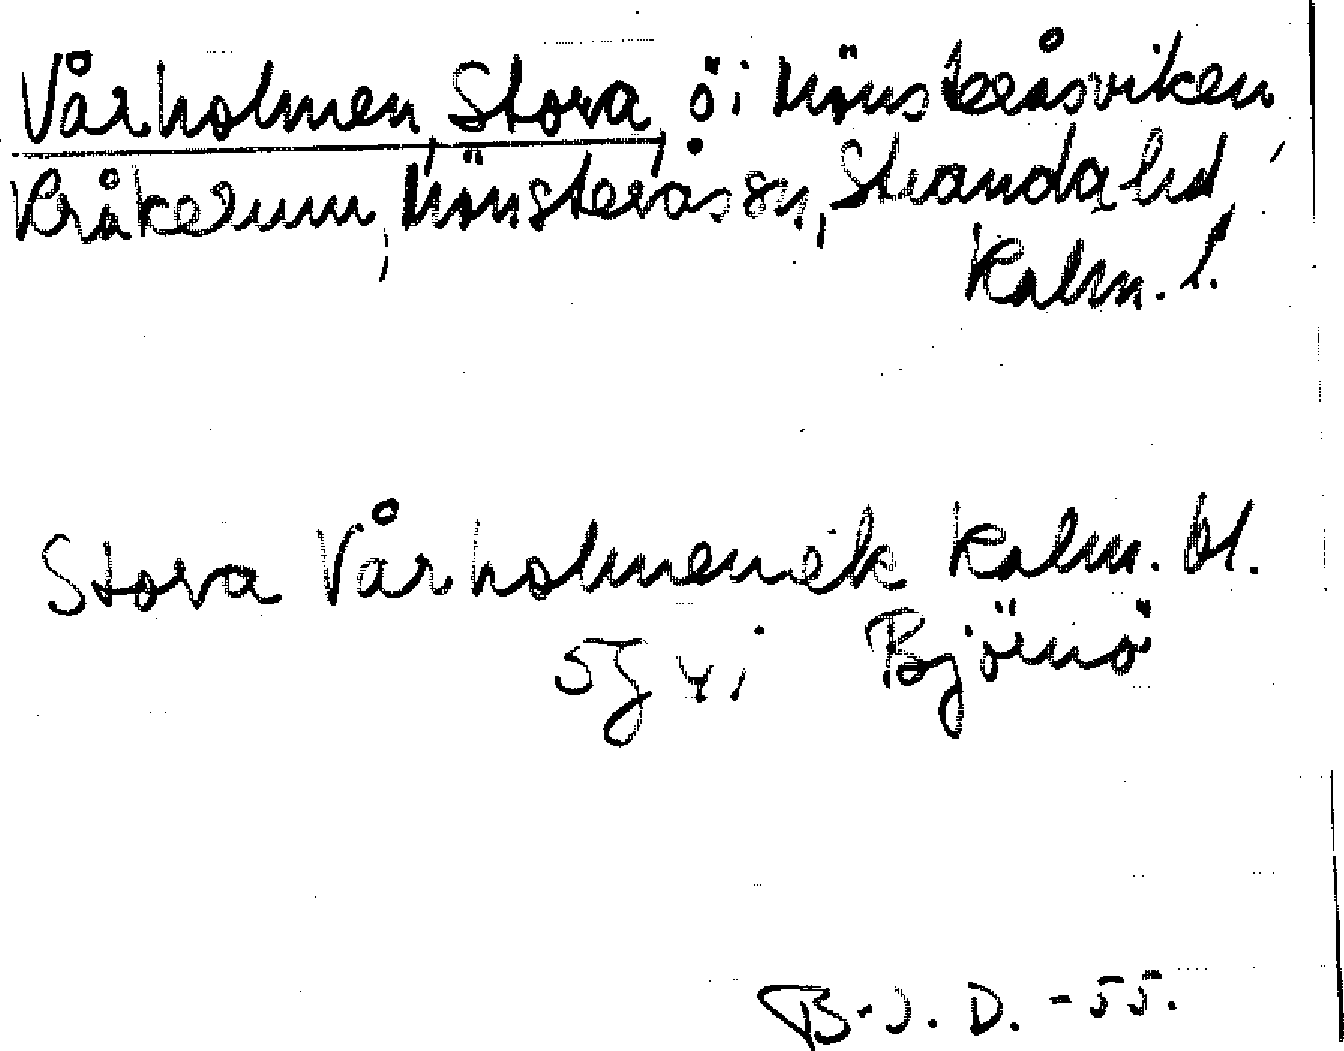 Vårholmen, Stora, ö i Mönsteråsviken,
Kråkerum, Mönsterås sn, Stranda hd,
Kalm. l.
Stora Vårholmen ek Kalm. bl.
5g yi Björnö
B-J. D. -55.